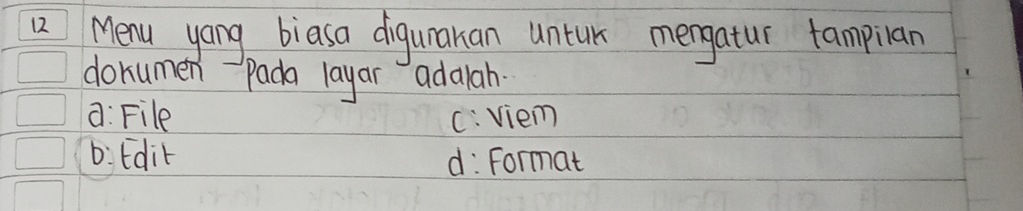 12 Menu yang biasa digunakan untuk mengatur tampilan
dokumen pada layar adalah..
a: File c: Viem
b: Edit d: Format